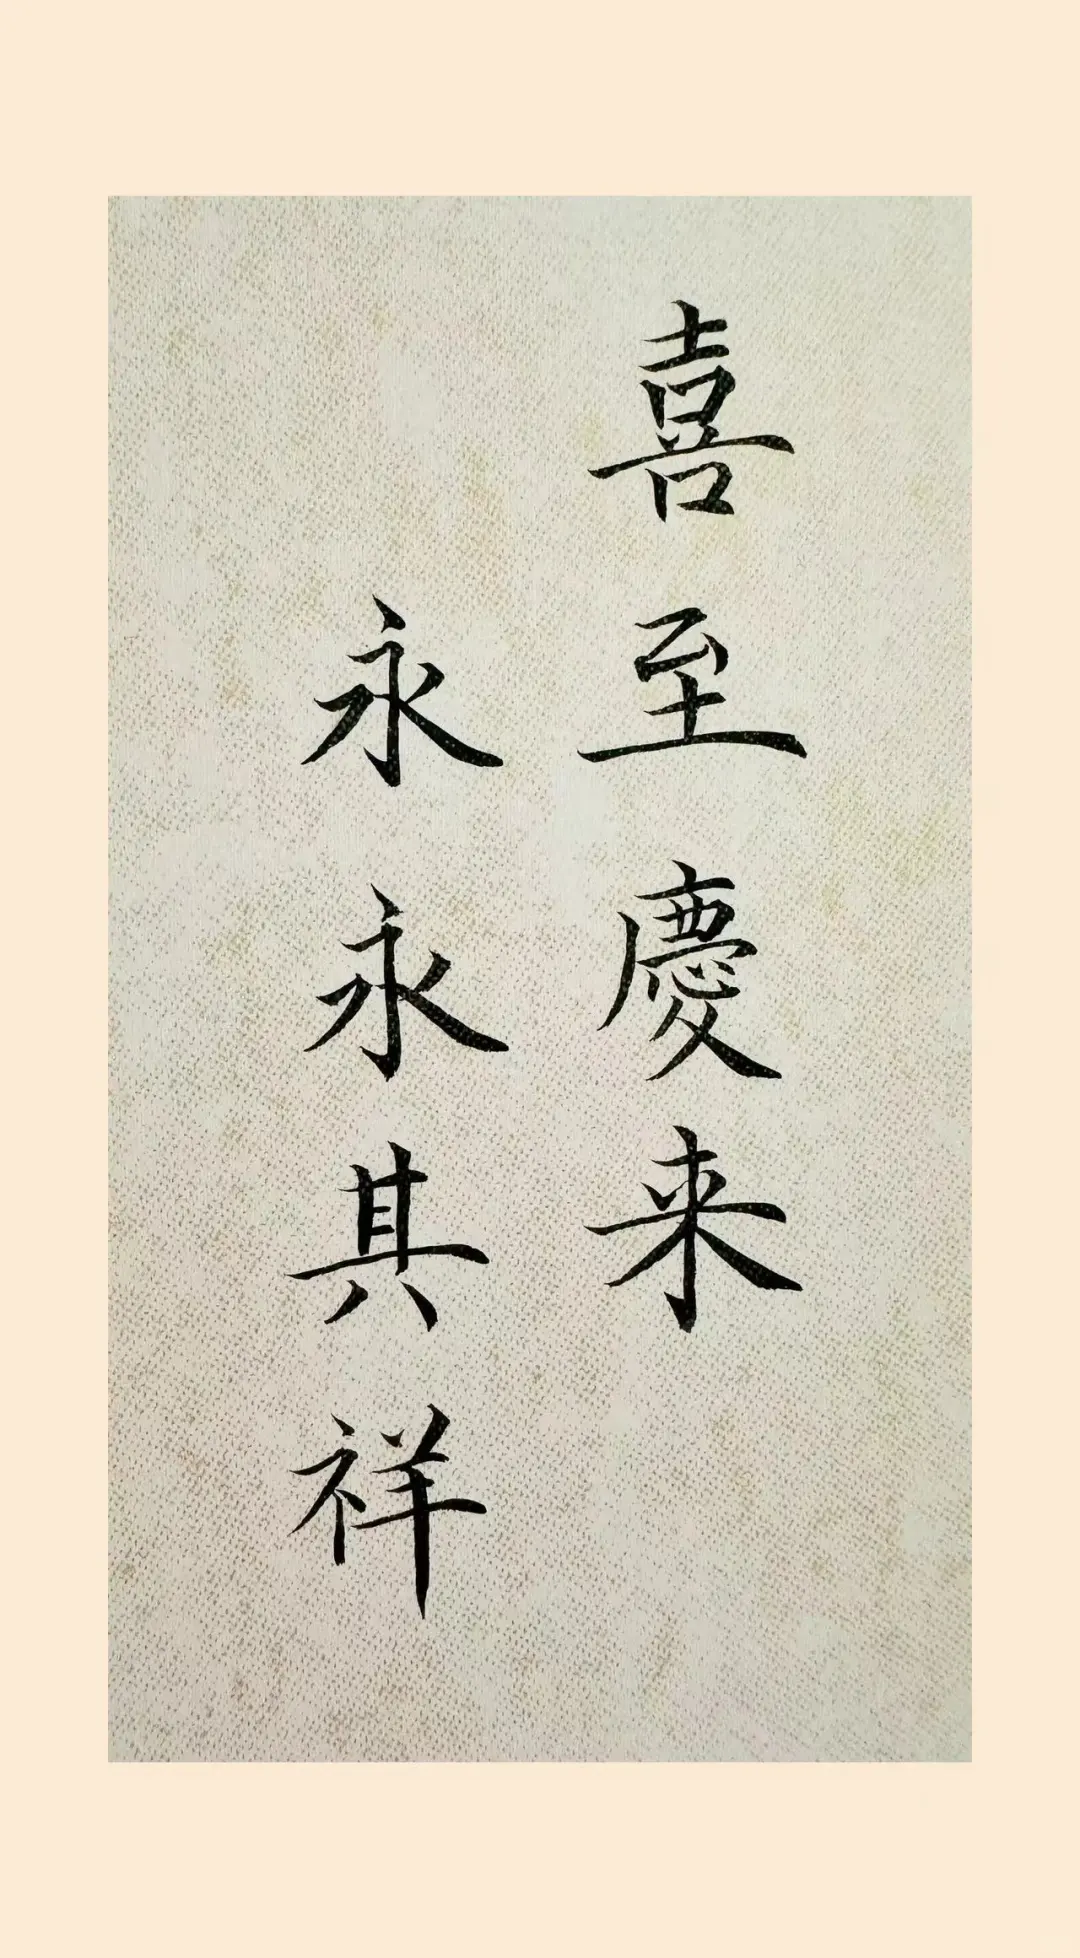 喜至慶来
永永其祥